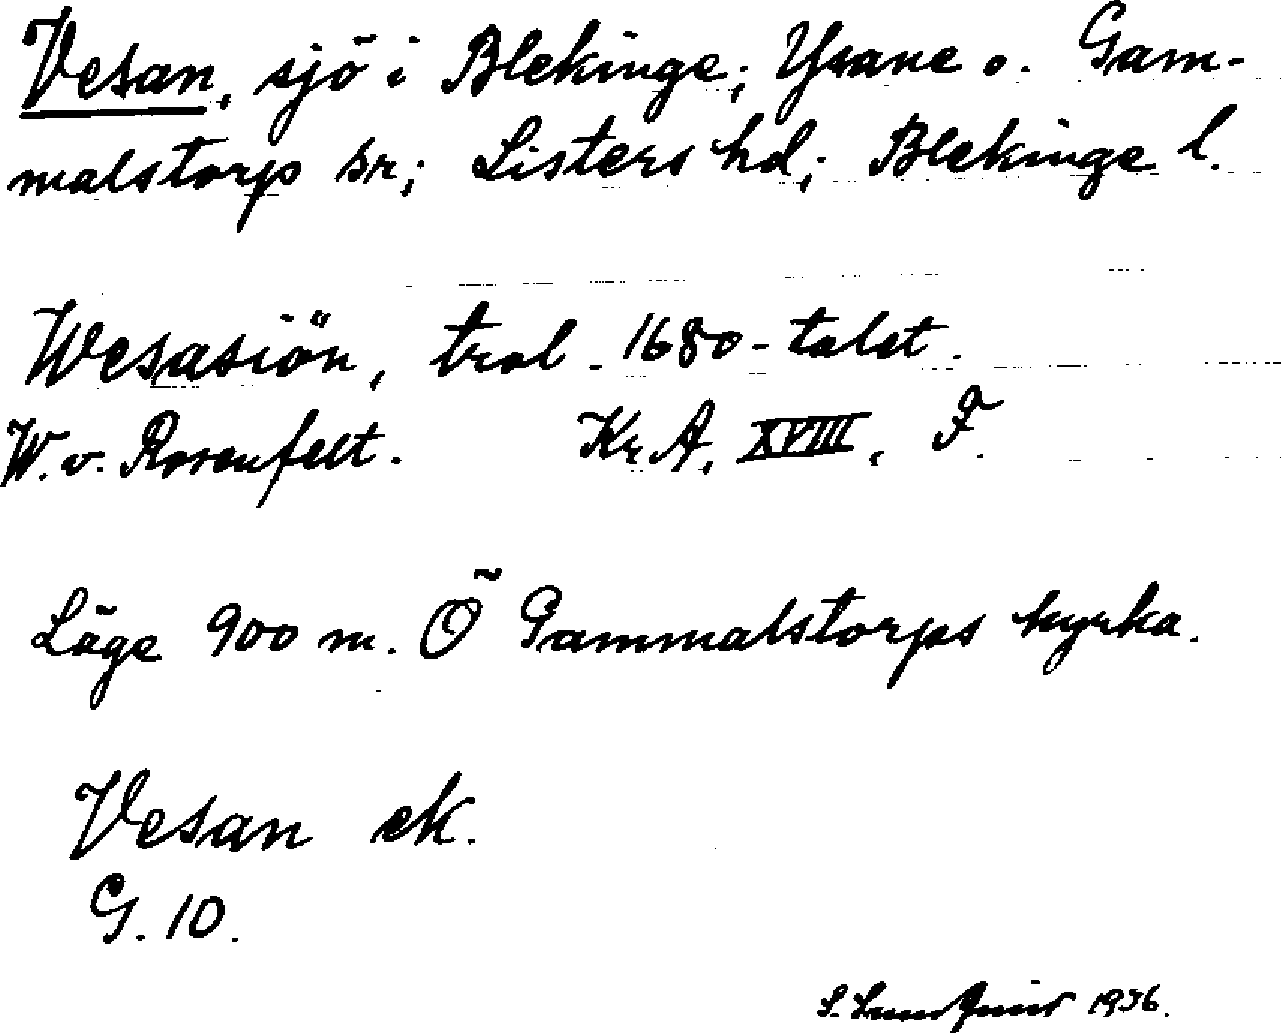 Vesan, sjö i Blekinge; Ysane o. Gam-
malstorps sn; Listers hd; Blekinge l.
Wesasiön, trol. 1680-talet.
W. v. Rosenfelt. Kr. A. XVIII, F.
Läge 900 m. Ö Gammalstorps kyrka.
Vesan ek.
G. 10.
S. 1936.